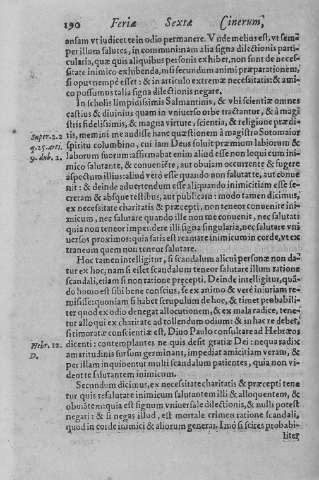 190 Feriæ Sextæ Cinerum,
onsam vt iudicet te in odio permanere. Vnde melius est, vt semper
per illum salutes, in communi nam alia signa dilectionis parti-
cularia, quæ quis aliquibus personis exhibet, non sunt de neces-
sitate inimico exhibenda, nisi secundum animi præparationem,
si opus nempè esset: & in articulo extremæ necessitatis: & ami-
co possumus talia signa dilectionis negare.
In scholis limpidissimis Salmantinis, & vbi scientiæ omnes
castius & diuinius quam in vniuerso orbe tractantur, & à magi-
stris fidelissimis, & magna virtute, scientia, & religione prædi-
Super. 2. 2 tis, memini me audisse hanc quæstionem à magistro Sotomaior
q. 25. arti. spiritu columbino, cui iam Deus soluit præmium laborum &
9. dub. 2. laborum suorum assirmabat enim aliud esse non loqui cum ini-
mico salutante, & conuenire, aut obuiam occurrente & fugere
aspectum illius: aliud verò esse quando non salutatte, aut conue
nit: & deinde aduertendum esse aliquando inimicitiam esse se-
cretam & absque testibus, aut publicam: modo tamen dicimus,
ex necessitate charitatis & præcepti, non tenetur conuenire ini-
micum, nec salutare quando ille non me conuenit, nec salutati
quia non teneor impendere illi signa singularia, nec salutare vni
uersos proximos: quia satis est tractare inimicum in corde, vt ex
traneum quem non teneor salutare.
Hoc tamen intelligitur, si scandalum alicui personæ non da-
tur ex hoc, nam si esset scandalum teneor salutare illum ratione
scandali, etiam si non ratione præcepti. Deinde intelligitur, quā-
do homo est sibi bene conscius, se ex animo & verè iniuriam re-
misisse: quoniam si habet scrupulum de hoc, & timet probabili-
ter quod ex odio denegat allocutionem, & ex mala radice, tene-
tur alloqui ex charitate ad tollendum odium: & in hac re debet,
si timoratæ conscientiæ est, Diuo Paulo consultare ad Hebræos
Hebr. 12. dicenti: contemplantes ne quis desit gratiæ Dei: ne qua radix
D. amaritudinis sursum germinans, impediat amicitiam veram, &
per illam inquinentur multi scandalum patientes, quia non vi-
dent te salutantem inimicum.
Secundum dicimus, ex necessitate charitatis & præcepti tene
tur quis resalutare inimicum salutantem illi & alloquentem, &
obuiātem: quia est signum vniuersale dilectionis, & nulli potest
negari: & si negas illud, est mortale crimen ratione scandali,
quod in corde inimici & aliorum generas. Imò si scires probabi-
liter